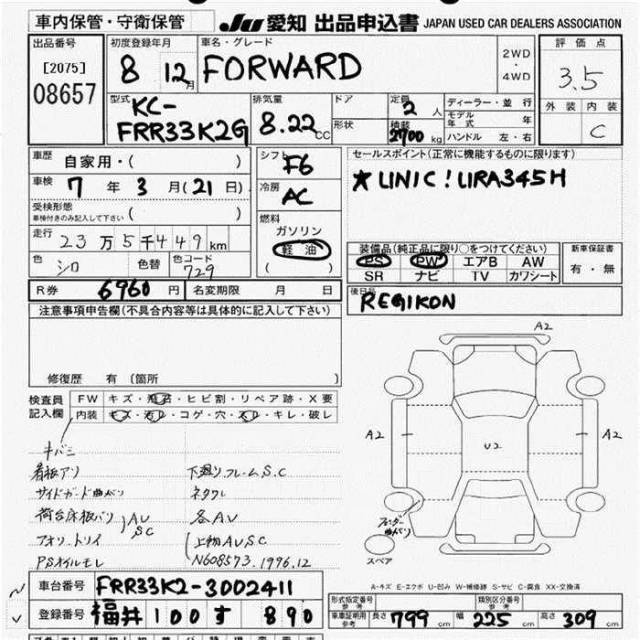 車内保管・守衛保管 JU 愛知 出品申込書 JAPAN USED CAR DEALERS ASSOCIATION
出品番号
[2075]
08657
初度登録年月
8 年 12 月
車名・グレード
FORWARD
2WD
・
4WD
評価点
3.5
外装 内装
C
型式
KC-
FRR33K2G
排気量
8.22 CC
ドア
形状
定員 2 人
積載 2700 kg
ディーラー・並行
モデル 年 年式
ハンドル 左・右
車歴 自家用・( )
車検 7 年 3 月 (21 日)
受検形態
車検付きのみ記入して下さい ( )
走行 23 万 5 千 449 km
色 シロ 色替 色コード 729
シフト F6
冷房 AC
燃料
ガソリン
軽油
( )
セールスポイント(正常に機能するものに限ります)
★ UNIC! URA345H
装備品(純正品に限り○をつけてください)
PS PW エアB AW
SR ナビ TV カワシート
新車保証書
有・無
R券 6960 円 名変期限 月 日
後日品
REGIKON
注意事項申告欄(不具合内容等は具体的に記入して下さい)
修復歴 有 (箇所
検査員
記入欄
FW キズ・飛石・ヒビ割・リペア跡・X要
内装 キズ・汚レ・コゲ・穴・スレ・キレ・破レ
キバミ
看板アリ
サイドガード曲ガリ
荷台床板バリ
アオリトリイ
AV
SC
PSオイルモレ
下廻リフレームS.C
ネタワレ
各AV
上物AV,SC
N608573.1996.12
A2
A2
U2
A2
フェンダー曲ガリ
スペア
A-キズ E-エクボ U-凹み W-補修跡 S-サビ C-腐食 XX-交換済
車台番号 FRR33K2-3002411
登録番号 福井 100 す 890
形式指定番号
参考
類別区分番号
参考
車庫証明用
参考
長さ 799 cm 幅 225 cm 高さ 309 cm